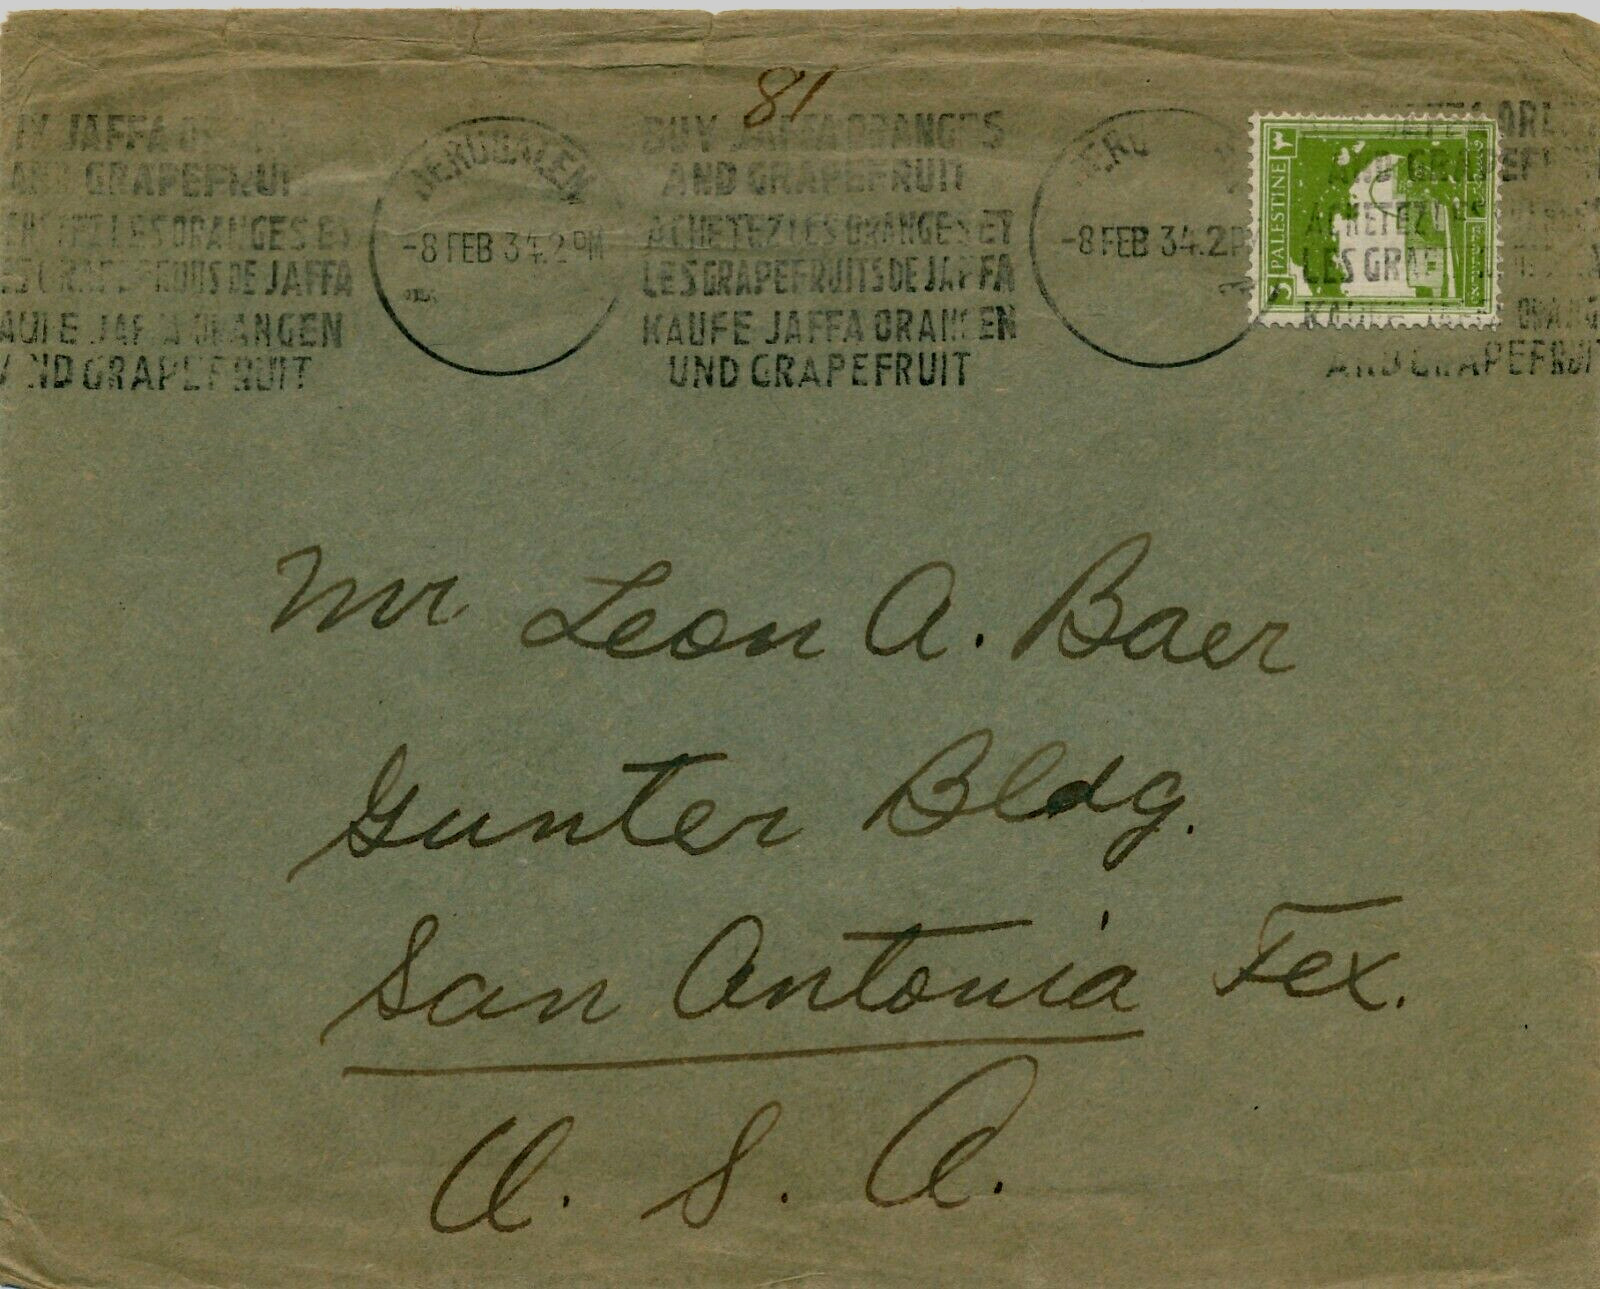 81
JAFFA
AND GRAPEFRUIT
LES ORANGES ET
DE JAFFA
JAFFA ORANGEN
UND GRAPEFRUIT
JERUSALEM
-8 FEB 34.2 PM
BUY JAFFA ORANGES
AND GRAPEFRUIT
ACHETEZ LES ORANGES ET
LES GRAPEFRUITS DE JAFFA
KAUFE JAFFA ORANGEN
UND GRAPEFRUIT
JERU
-8 FEB 34.2 P
PALESTINE
AND GRAPEF
ACHETEZ
LES GRAP
KAUFE
GRAPEFRUIT
Mr Leon A. Baer
Gunter Bldg.
San Antonia Tex.
U. S. A.